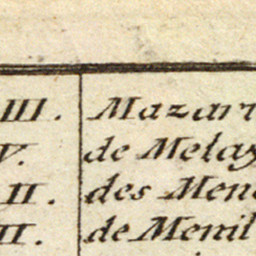 III. Mazar
V. de Melay
II. des Men
II. de Menil